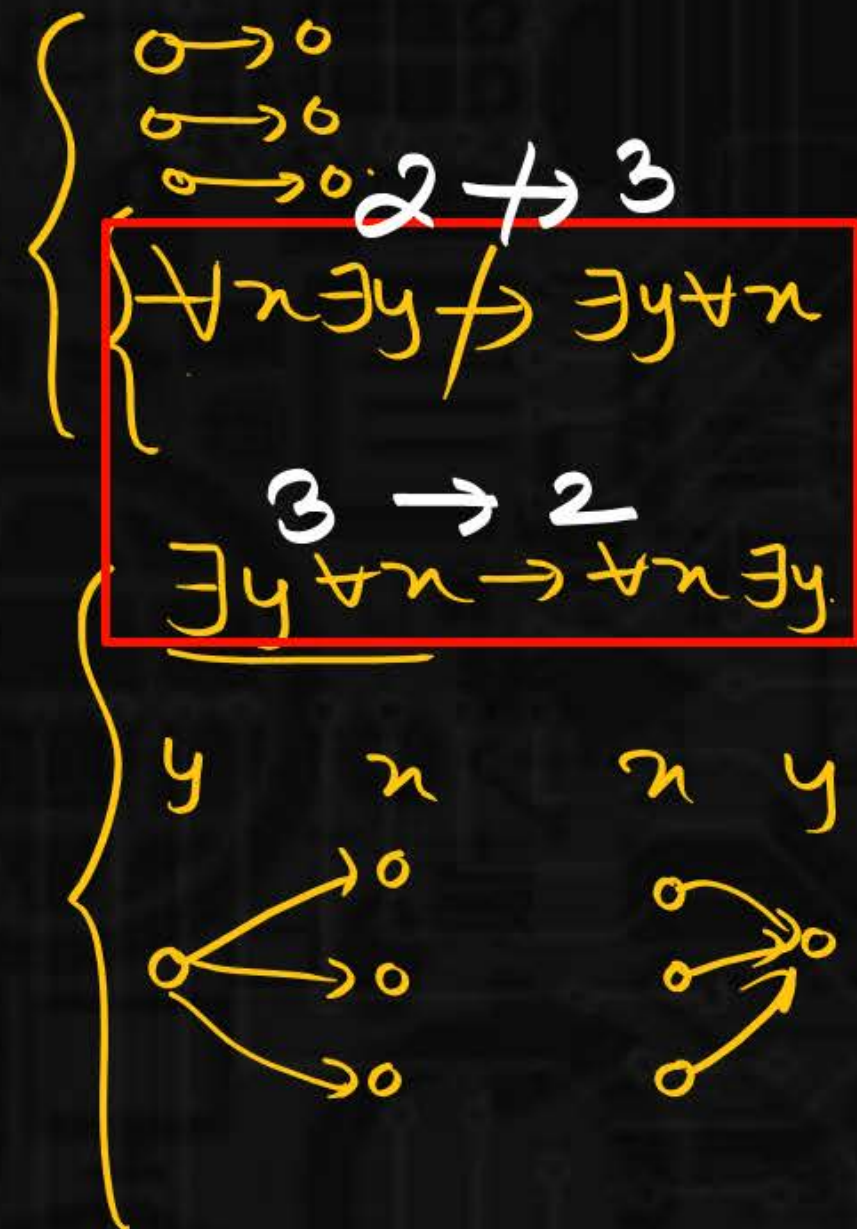 2 ↛ 3
∀x∃y ↛ ∃y∀x
3 → 2
∃y∀x → ∀x∃y
y x x y